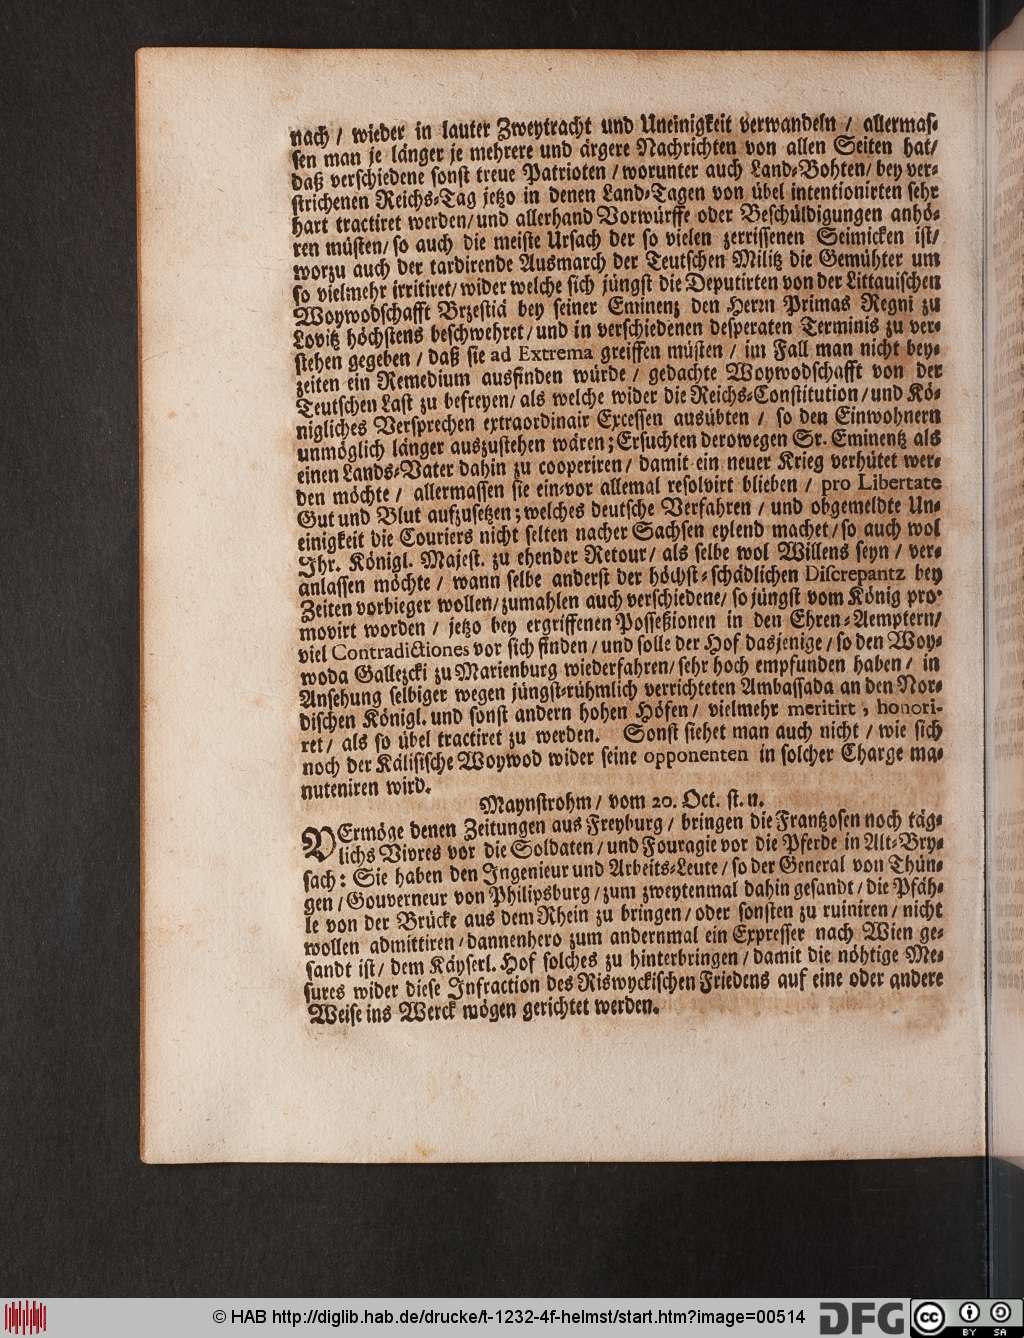 nach / wieder in lauter Zweytracht und Uneinigkeit verwandeln / allermas-
sen man je länger je mehrere und ärgere Nachrichten von allen Seiten hat/
daß verschiedene sonst treue Patrioten / worunter auch Land-Bohten/ bey ver-
strichenen Reichs-Tag jetzo in denen Land-Tagen von übel intentionirten sehr
hart tractiret werden/ und allerhand Vorwürffe oder Beschüldigungen anhö-
ren müsten/ so auch die meiste Ursach der so vielen zerrissenen Seimicken ist/
worzu auch der tardirende Ausmarch der Teutschen Militz die Gemühter um
so vielmehr irritiret/ wider welche sich jüngst die Deputirten von der Littauischen
Woywodschafft Brzestiä bey seiner Eminenz den Herrn Primas Regni zu
Lovitz höchstens beschwehret/ und in verschiedenen desperaten Terminis zu ver-
stehen gegeben / daß sie ad Extrema greiffen müsten / im Fall man nicht bey-
zeiten ein Remedium ausfinden würde / gedachte Woywodschafft von der
Teutschen Last zu befreyen/ als welche wider die Reichs-Constitution/ und Kö-
nigliches Versprechen extraordinair Excessen ausübten / so den Einwohnern
unmöglich länger auszustehen wären; Ersuchten derowegen Sr. Eminentz als
einen Lands-Vater dahin zu cooperiren / damit ein neuer Krieg verhütet wer-
den möchte / allermassen sie ein-vor allemal resolvirt blieben / pro Libertate
Gut und Blut aufzusetzen; welches deutsche Verfahren / und obgemeldte Un-
einigkeit die Couriers nicht selten nacher Sachsen eylend machet/ so auch wol
Ihr. Königl. Majest. zu ehender Retour/ als selbe wol Willens seyn / ver-
anlassen möchte / wann selbe anderst der höchst-schädlichen Discrepantz bey
Zeiten vorbieger wollen/ zumahlen auch verschiedene/ so jüngst vom König pro-
movirt worden / jetzo bey ergriffenen Posseßionen in den Ehren-Aemptern/
viel Contradictiones vor sich finden / und solle der Hof dasjenige / so den Woy-
woda Gallezcki zu Marienburg wiederfahren/ sehr hoch empfunden haben / in
Ansehung selbiger wegen jüngst-rühmlich verrichteten Ambassada an den Nor-
dischen Königl. und sonst andern hohen Höfen / vielmehr meritirt, honori-
ret / als so übel tractiret zu werden. Sonst siehet man auch nicht / wie sich
noch der Kälisische Woywod wider seine opponenten in solcher Charge ma-
nuteniren wird.
Maynstrohm / vom 20. Oct. st. n.
VErmöge denen Zeitungen aus Freyburg / bringen die Frantzosen noch täg-
lichs Vivres vor die Soldaten/ und Fouragie vor die Pferde in Alt-Bry-
sach: Sie haben den Ingenieur und Arbeits-Leute/ so der General von Thün-
gen / Gouverneur von Philipsburg / zum zweytenmal dahin gesandt / die Pfäh-
le von der Brücke aus dem Rhein zu bringen / oder sonsten zu ruiniren / nicht
wollen admittiren / dannenhero zum andernmal ein Expresser nach Wien ge-
sandt ist/ dem Käyserl. Hof solches zu hinterbringen / damit die nöhtige Me-
sures wider diese Infraction des Riswyckischen Friedens auf eine oder andere
Weise ins Werck mögen gerichtet werden.
© HAB http://diglib.hab.de/drucke/t-1232-4f-helmst/start.htm?image=00514
DFG
cc BY SA